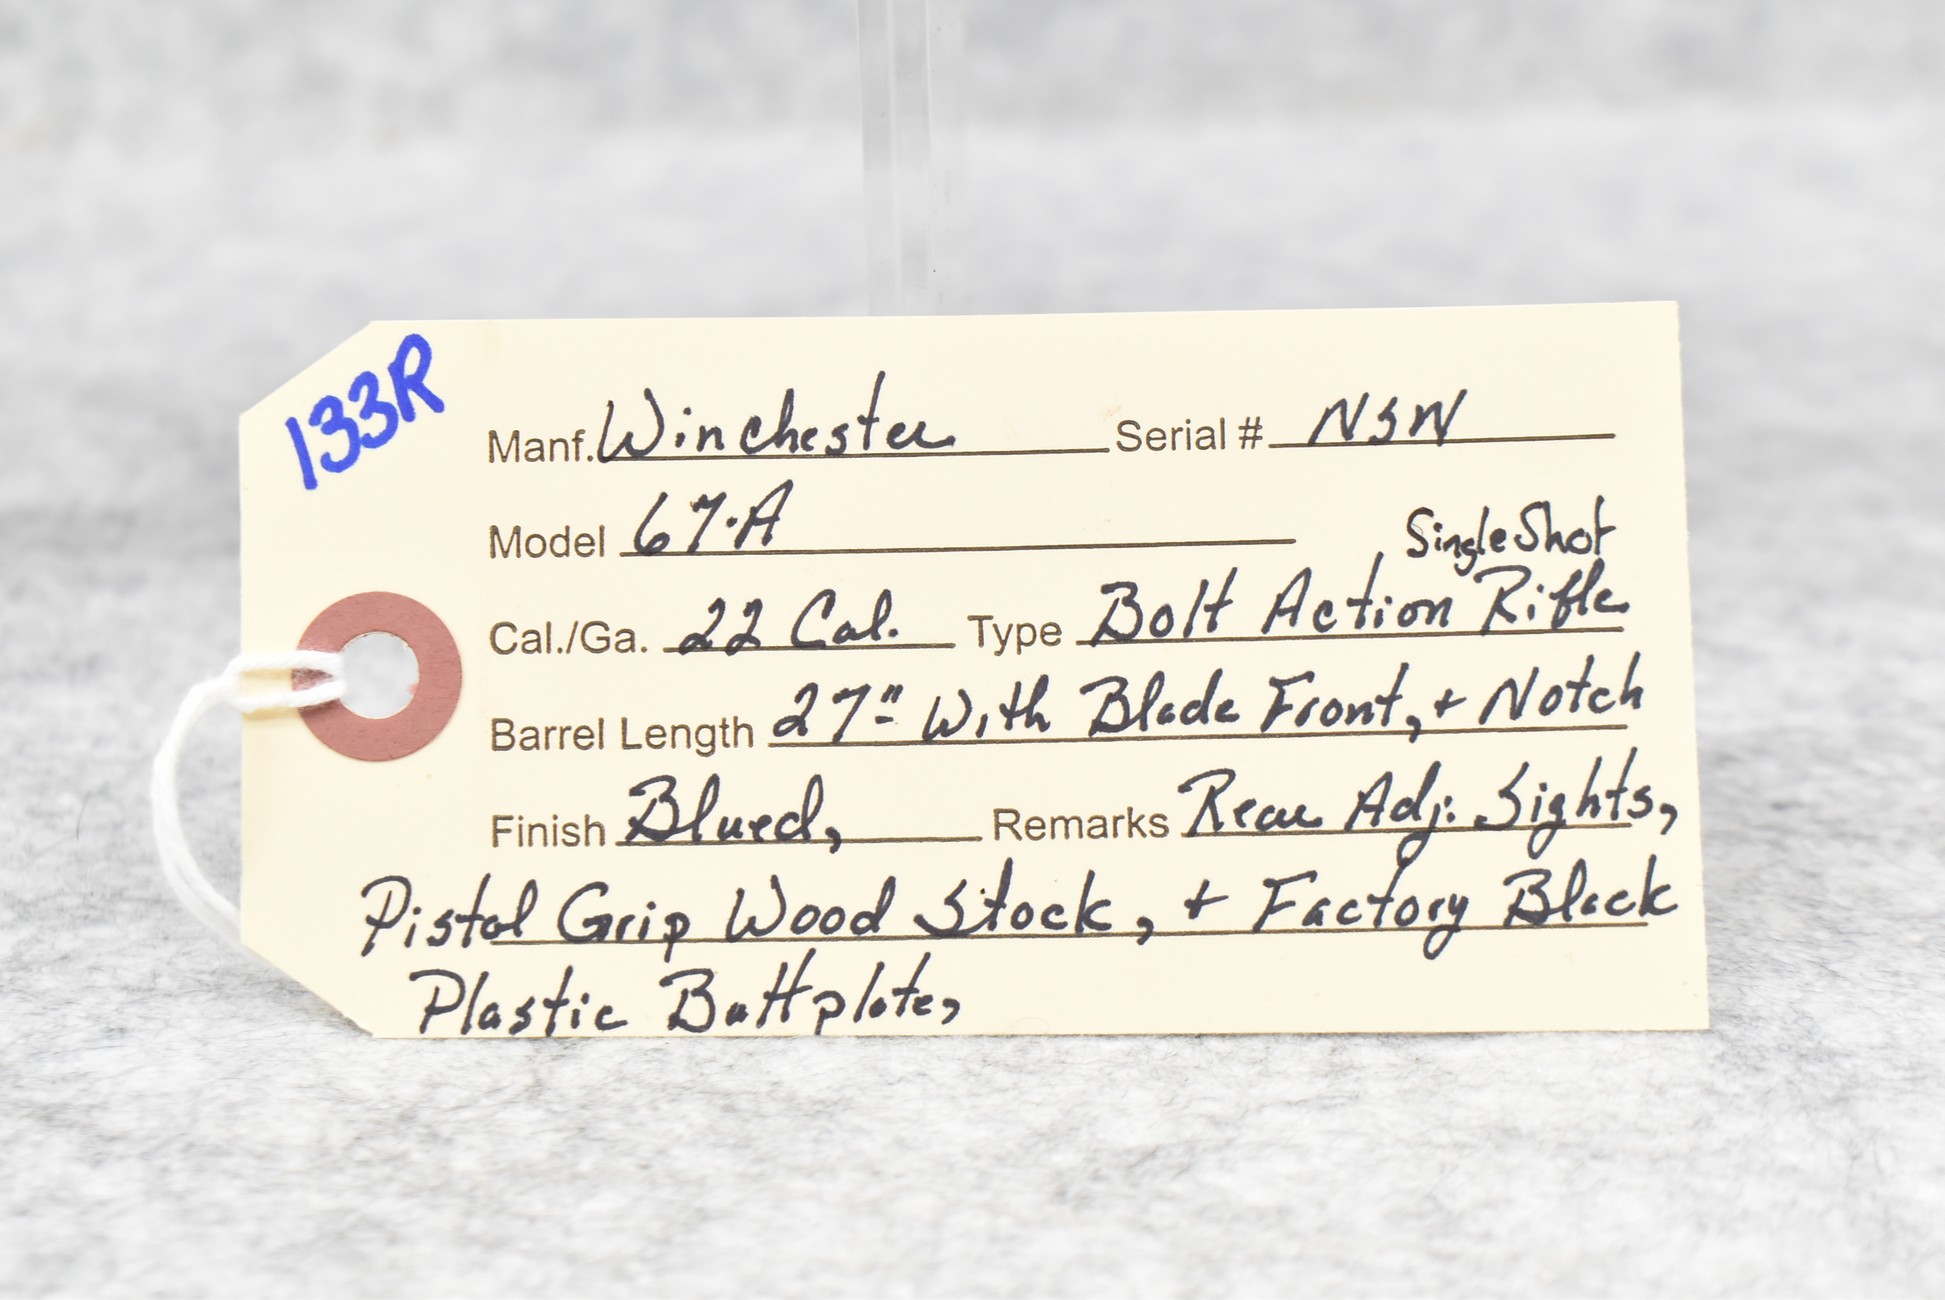 133R
Manf. Winchester Serial # NSN
Model 67-A
Single Shot
Cal./Ga. 22 Cal. Type Bolt Action Rifle
Barrel Length 27" With Blade Front, + Notch
Finish Blued, Remarks Rear Adj. Sights,
Pistol Grip Wood Stock, + Factory Black
Plastic Buttplate,